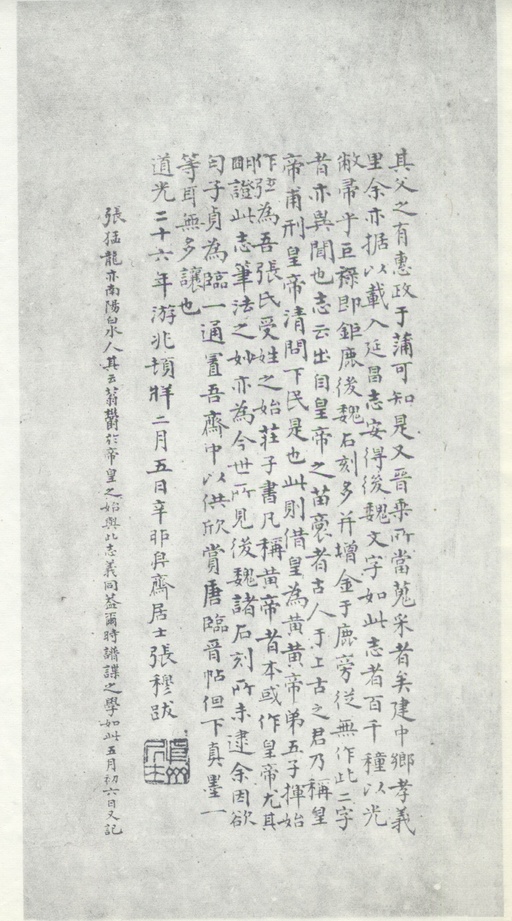 其父之有惠政于蒲可知是又晉乘所當蒐采者矣建中鄉孝義
里余亦据以載入延昌志安得後魏文字如此志者百千種以光
敝帚乎巨祿即鉅鹿後魏石刻多并增金于鹿旁從無作此二字
者亦異聞也志云出自皇帝之苗裔者古人于上古之君乃稱皇
帝甫刑皇帝清問下民是也此則借皇為黃黃帝弟五子揮始
作弦為吾張氏受姓之始莊子書凡稱黃帝者本或作皇帝尤其
明證此志筆法之妙亦為今世所見後魏諸石刻所未逮余因欲
勾子貞為臨一通置吾齋中以供欣賞唐臨晉帖但下真墨一
等耳無多讓也
道光二十六年游兆頓牂二月五日辛卯㕚齋居士張穆跋
張猛龍亦南陽白水人其云蓊鬱於帝皇之始與此志義同蓋爾時譜諜之學如此五月初六日又記